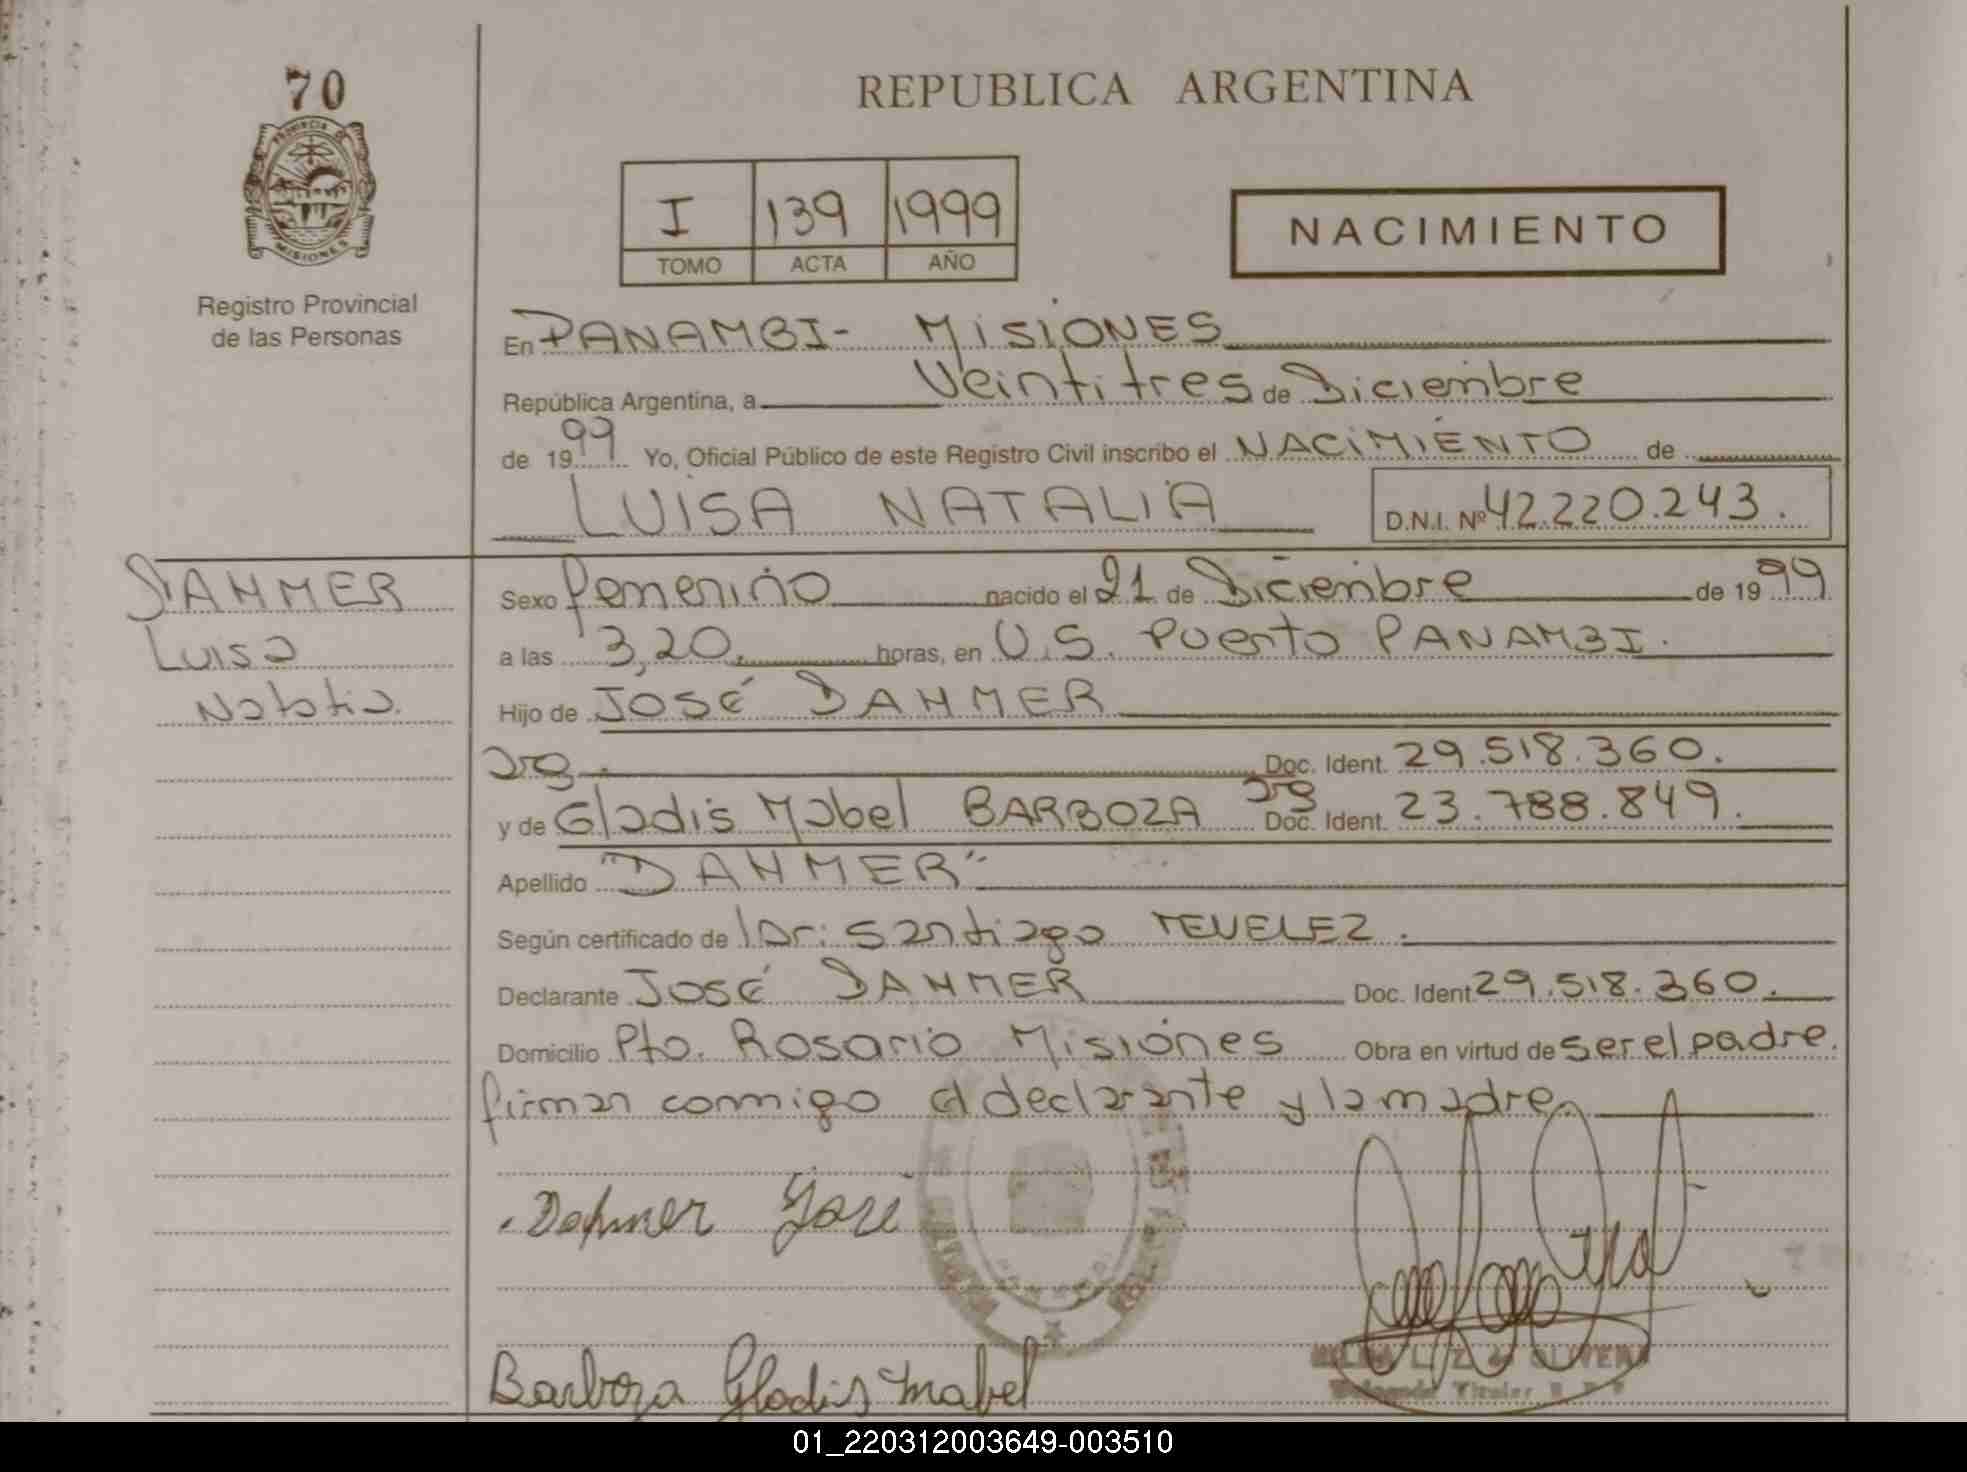 70
PROVINCIA DE
MISIONES
Registro Provincial
de las Personas
REPUBLICA ARGENTINA
I 139 1999
TOMO ACTA AÑO
NACIMIENTO
En PANAMBI- MISIONES
República Argentina, a Veintitres de Diciembre
de 1999 Yo, Oficial Público de este Registro Civil inscribo el NACIMIENTO de
LUISA NATALIA D.N.I. Nº 42.220.243.
DAHMER
Luisa
Natalia.
Sexo femenino nacido el 21 de Diciembre de 1999
a las 3,20. horas, en U.S. Puerto PANAMBI.
Hijo de JOSÉ DAHMER
arg. Doc. Ident. 29.518.360.
y de Gladis Mabel BARBOZA arg Doc. Ident. 23.788.849.
Apellido "DAHMER"
Según certificado de Dr: Santiago TEVELEZ.
Declarante JOSÉ DAHMER Doc. Ident 29.518.360.
Domicilio Pto. Rosario Misiones Obra en virtud de ser el padre.
firman conmigo el declarante y la madre.
Dahmer José
Barboza Gladis Mabel
OLIVERA
Delegada Titular
01_220312003649-003510